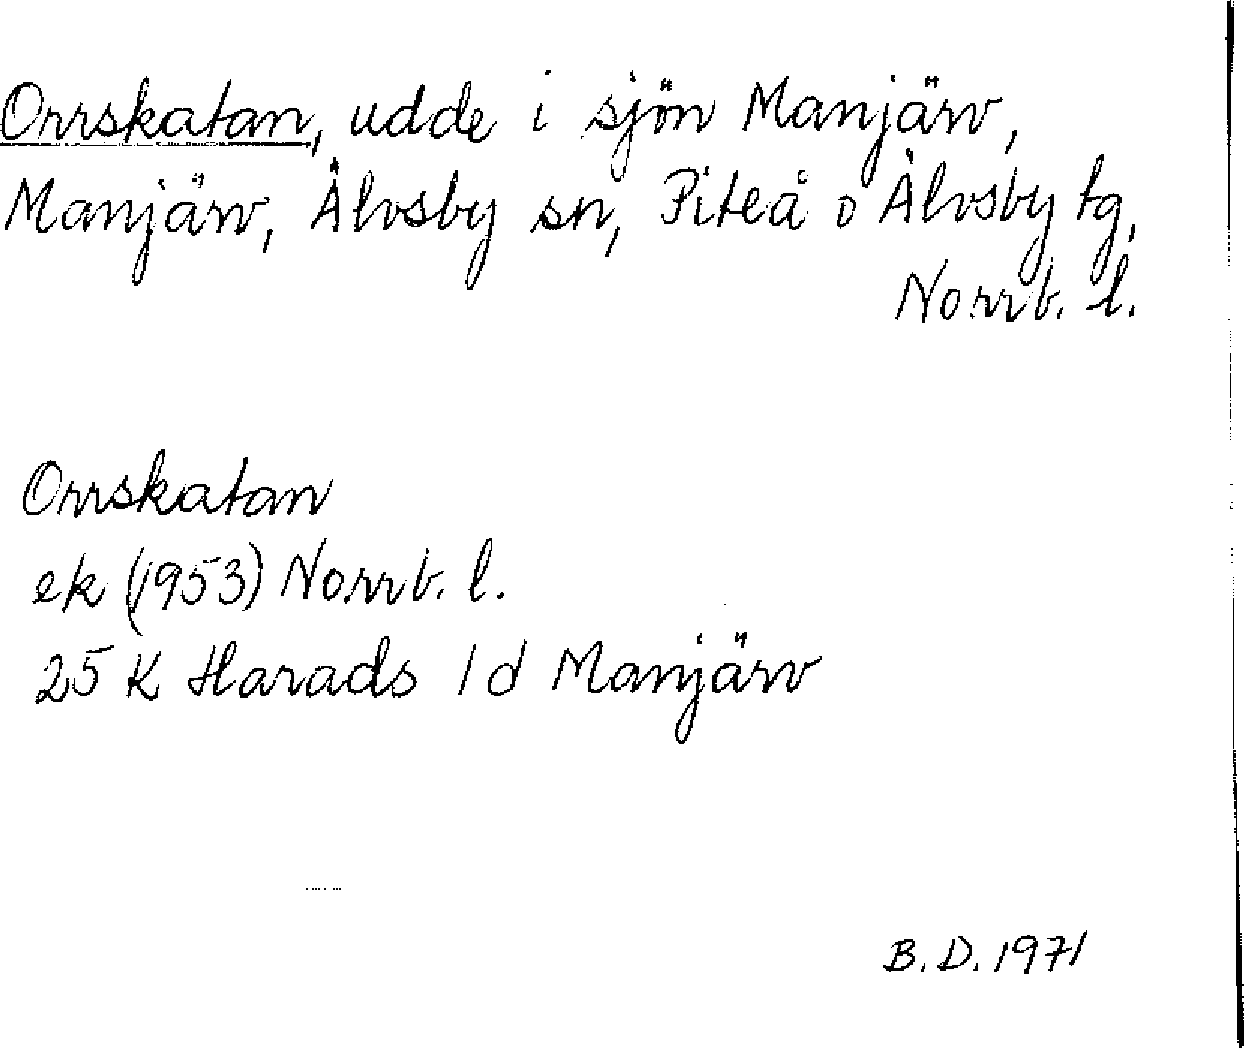 Orrskatan, udde i sjön Manjärv,
Manjärv, Älvsby sn, Piteå o Älvsby tg,
Norrb. l.
Orrskatan
ek (1953) Norrb. l.
25 K Harads 1d Manjärv
B. D. 1971